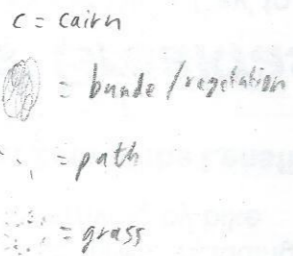 c = cairn
= bunde/vegetation
= path
= grass